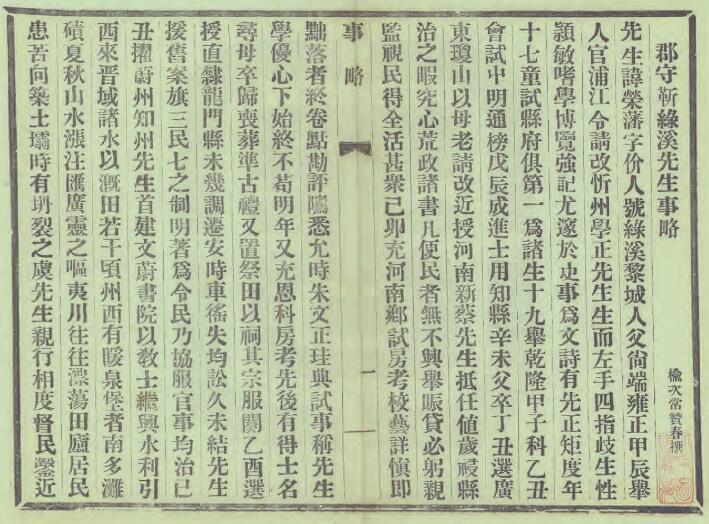 郡守靳綠溪先生事略
榆次常贊春撰
先生諱榮藩字价人號綠溪黎城人父尙端雍正甲辰舉
人官浦江令請改忻州學正先生生而左手四指歧生性
穎敏嗜學博覽強記尤邃於史事爲文詩有先正矩度年
十七童試縣府俱第一爲諸生十九舉乾隆甲子科乙丑
會試中明通榜戊辰成進士用知縣辛未父卒丁丑選廣
東瓊山以母老請改近授河南新蔡先生抵任値歲祲縣
治之暇究心荒政諸書凡便民者無不興舉賑貸必躬親
監視民得全活甚衆己卯充河南鄕試房考校藝詳愼卽
事略
一
黜落者終卷點勘評隲悉允時朱文正珪典試事稱先生
學優心下始終不苟明年又充恩科房考先後有得士名
尋母卒歸喪葬準古禮又置祭田以祠其宗服闋乙酉選
授直隸龍門縣未幾調遷安時車徭失均訟久未結先生
援舊案旗三民七之制明著爲令民乃協服官事均治己
丑擢蔚州知州先生首建文蔚書院以敎士繼興水利引
西來晋域諸水以漑田若干頃州西有暖泉堡者南多灘
磧夏秋山水漲注匯廣靈之嘔夷川往往漂蕩田廬居民
患苦向築土壩時有坍裂之虞先生親行相度督民鑿近